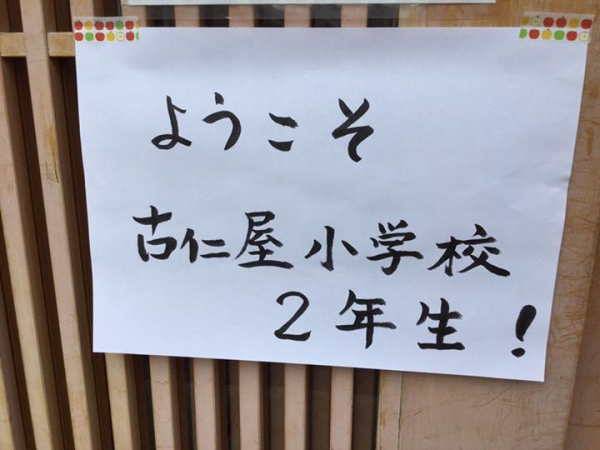 ようこそ
古仁屋小学校
2年生!